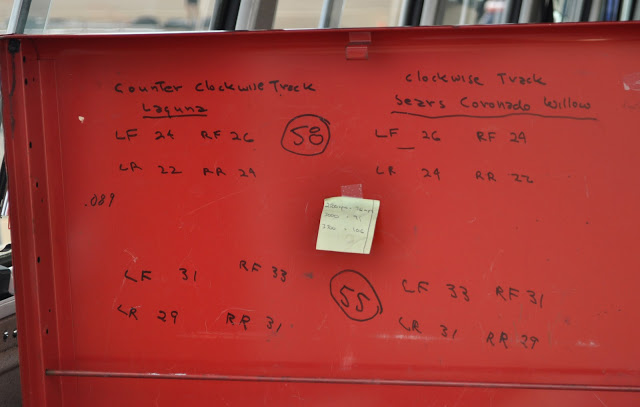 Counter Clockwise Track
Laguna
Clockwise Track
Sears Coronado Willow
LF 24 RF 26
58
LF 26 RF 24
LR 22 RR 24
LR 24 RR 22
.089
LF 31 RF 33
55
LF 33 RF 31
LR 29 RR 31
LR 31 RR 29